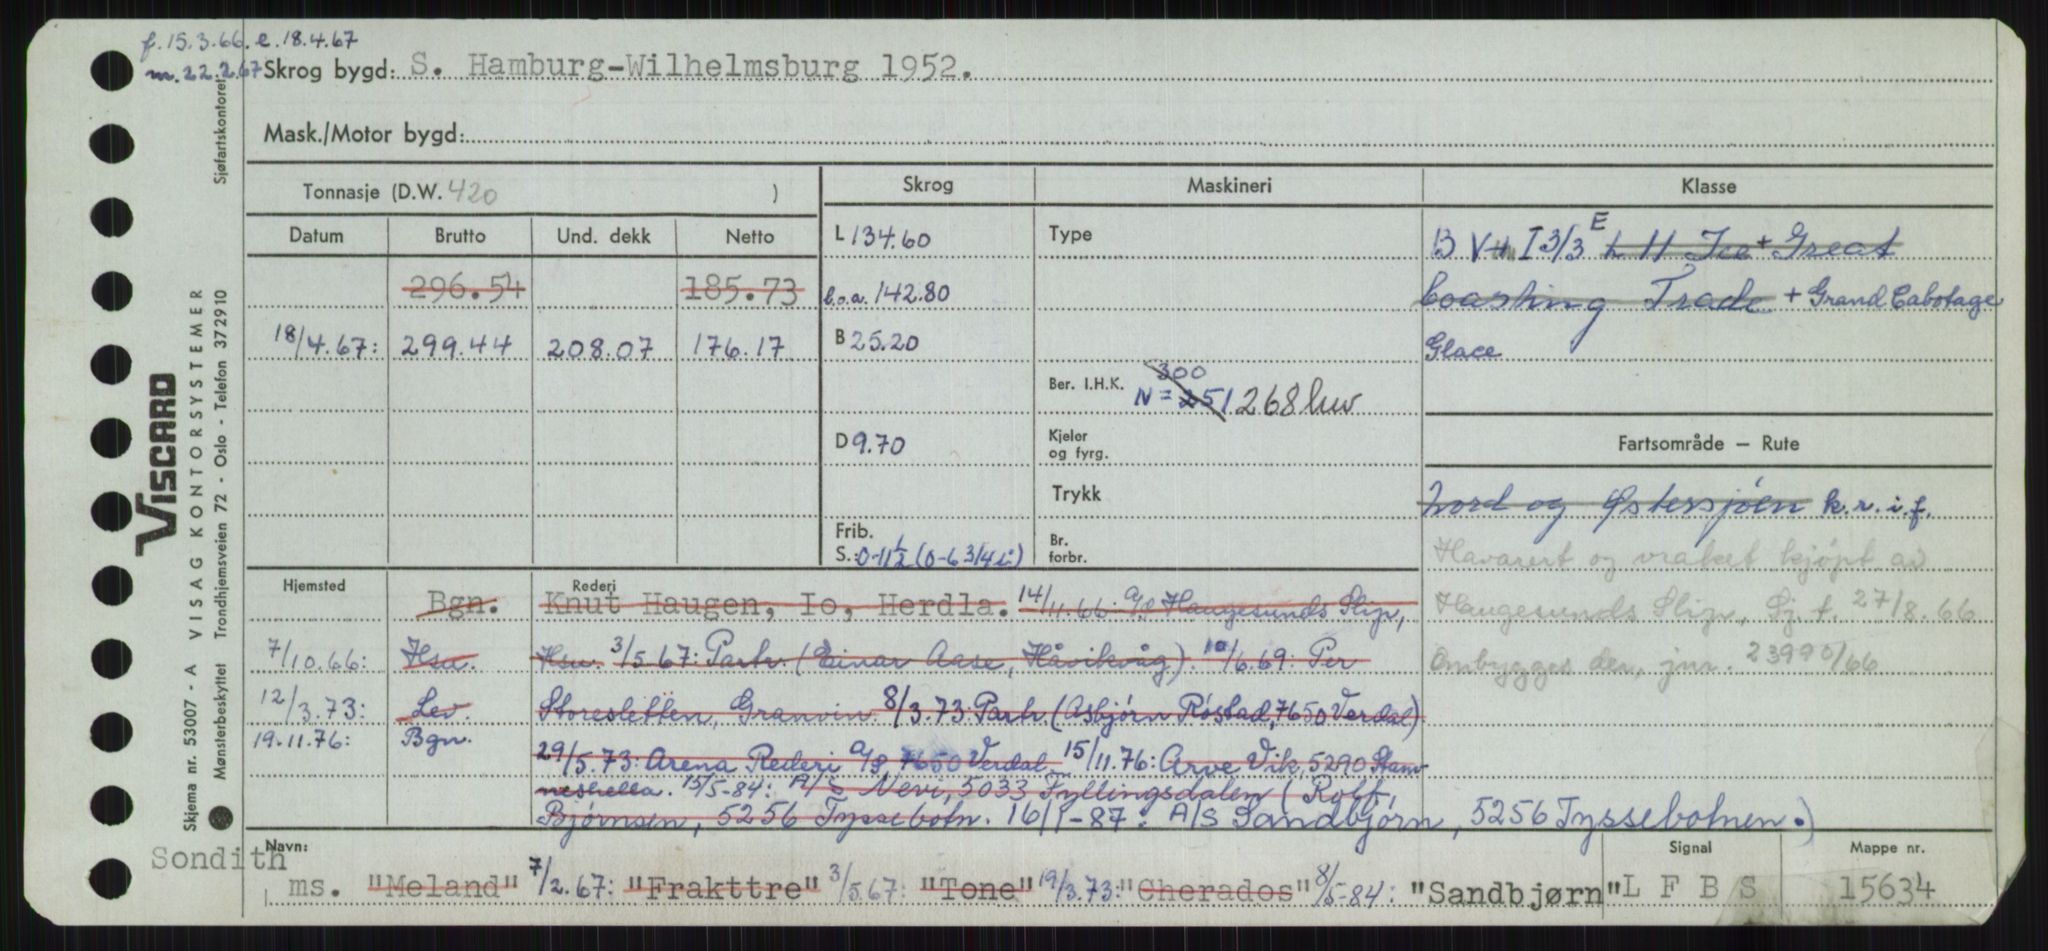 f. 15.3.66. e. 18.4.67
m. 22.2.67 Skrog bygd: S. Hamburg-Wilhelmsburg 1952.
Mask./Motor bygd:
Tonnasje (D.W. 420 )
Skrog Maskineri Klasse
Datum Brutto Und. dekk Netto
L 134.60 Type B V I 3/3 E L 11 Ice + Great
296.54 185.73
l.o.a. 142.80 Coasting Trade + Grand Cabotage
18/4.67: 299.44 208.07 176.17
B 25.20 Glace
Ber. I.H.K. N = 251 300 268 hw
Fartsområde — Rute
D 9.70 Kjeler og fyrg.
Trykk Nord og Østersjøen k.r.i.f.
Frib.
S.: 0-11½ (0-6 3/4 i) Br. forbr.
Havarert og vraket kjøpt av
Haugesunds Slip, Sj. f. 27/8.66
Ombygges der, jnr. 23990/66
Hjemsted Rederi
Bgn. Knut Haugen, Io, Herdla. 14/11.66: A/S Haugesunds Slip,
7/10.66: Hsu. Hsu. 3/5.67: Partr. (Einar Aase, Håvikvåg). 10/6.69: Per
12/3.73: Lev. Storesletten, Granvin 8/3.73: Partr. (Asbjørn Røstad, 7650 Verdal)
19.11.76: Bgn. 29/5.73: Arena Rederi A/S 7650 Verdal 15/11.76: Arve Vik, 5290 Stam-
neshella. 15/5-84: A/S Nevi, 5033 Fyllingsdalen (Rolf,
Bjørnsen, 5256 Tyssebotn. 16/1-87: A/S Sandbjørn, 5256 Tyssebotnen.)
Navn: Sondith
ms. "Meland" 7/2.67: "Frakttre" 3/5.67: "Tone" 19/3.73: "Cherados" 8/5-84: "Sandbjørn"
Signal L F B S
Mappe nr. 15634
VISCARD
VISAG KONTORSYSTEMER
Trondhjemsveien 72 - Oslo - Telefon 372910
Skjema nr. 53007 - A
Mønsterbeskyttet
Sjøfartskontoret